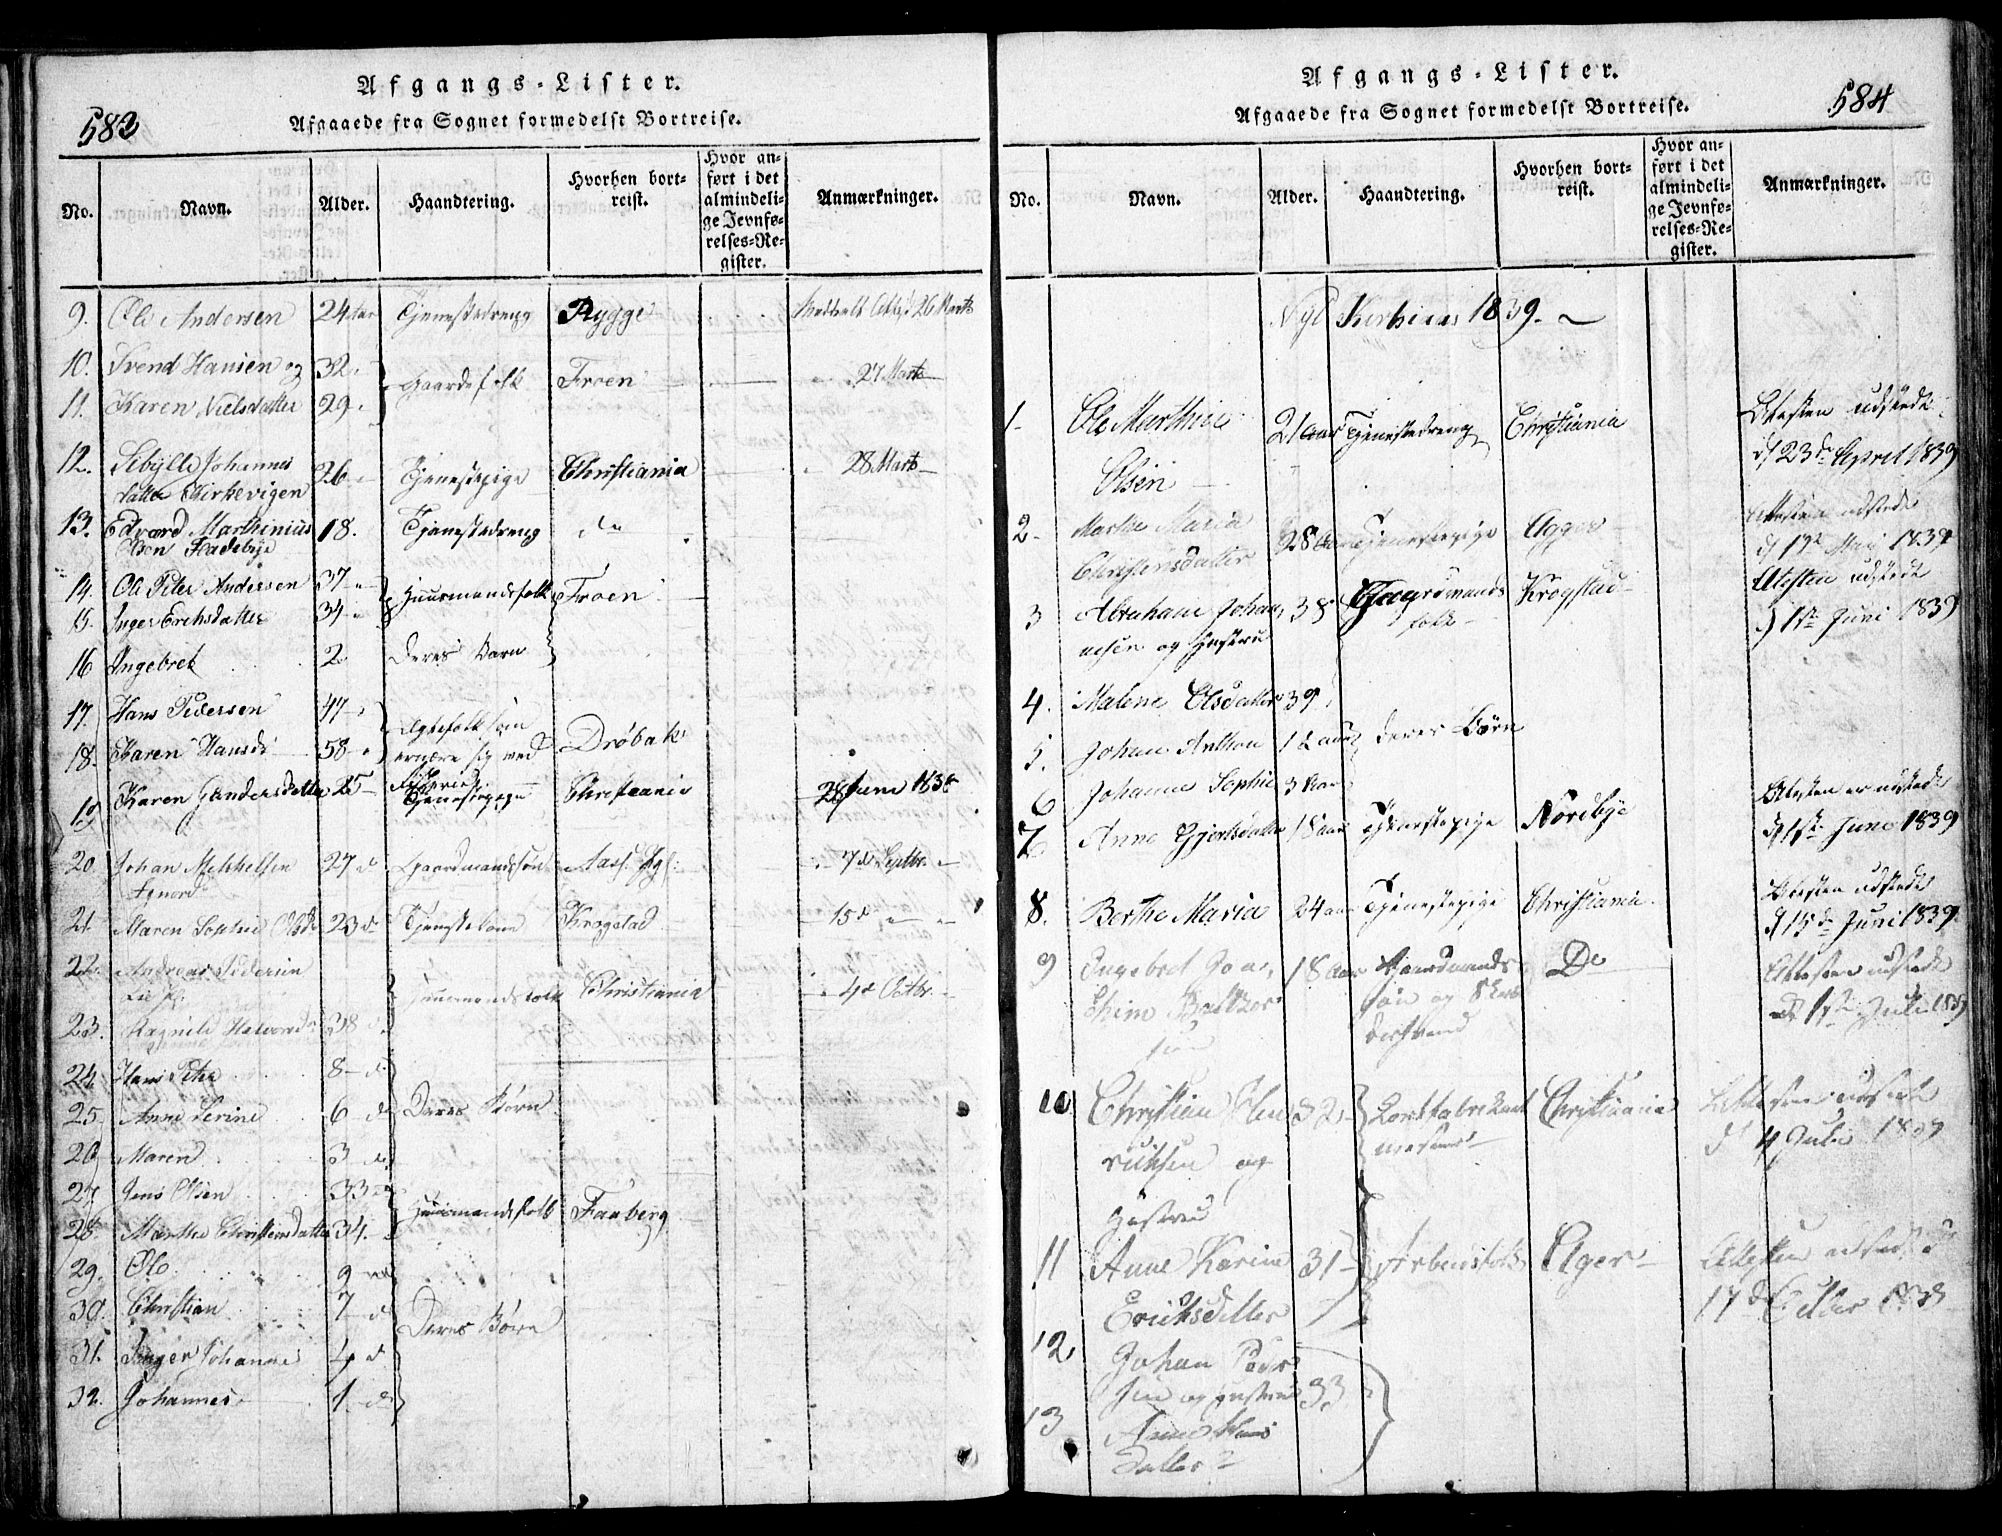 583
Afgangs-Lister.
Afgaaede fra Sognet formedelst Bortreise.
No. Navn. Alder. Haandtering. Hvorhen bortreist. Hvor anført i det almindelige Jevnførelses-Register. Anmærkninger.
9. Ole Andersen 24 Aar Tjenestedreng Rygge 26 Marts
10. Svend Hansen og 32 Gaardefolk Froen 27 Marts
11. Karen Nielsdatter 29
12. Sibylle Johannes
datter Kirkevigen 26 Tjenestepige Christiania 28 Marts
13. Edvard Marthinius 18. Tjenestedreng do
Olsen Fladebye
14. Ole Peter Andersen 37 Huusmandsfolk Froen
15 Inger Erichsdatter 34
16 Ingebret 2 Deres Barn
17. Hans Pedersen 47 Ægtefolk som
18. Karen Hansd 58 ernære sig med Drøbak
19 Karen Gundersdatter 25 Tjenestepige Christiania 28 Juni 1838
20 Johan Mikkelsen 27 d Gaardmandssøn Aass Pgj: 7d Septbr.
21 Maren Sophie Olsd 23 d Krogstad 15 d
22. Andreas Pedersen
Huusmandsfolk Christiania 4d Octbr.
23. Ragnild Halvorsd 38 d
24 Hans Peter 8 d
25. Anne Serine 6 d Deres Børn
26 Maren 3 d
27 Jens Olsen 33 Huusmandsfolk Faaberg
28. Marthe Christensdatter 34.
29. Ole 9
30. Christian 7 d Deres Børn
31. Inger Johanne 4 d
32. Johannes 1 d
584
Afgangs-Lister.
Afgaaede fra Sognet formedelst Bortreise.
No. Navn. Alder. Haandtering. Hvorhen bortreist. Hvor anført i det almindelige Jevnførelses-Register. Anmærkninger.
1839.
1 Ole Marthin 21 aar Tjenestedreng Christiania Attesten udstedt
Olsen d 23de April 1839
2 Marthe Maria 28 Aar Tjenestepige Agger Attesten udstedt
Christensdatter d 13de Mai 1839
3 Abraham Johan 38 Gaardmands Krogstad Attesten udstedt
nesen og Hustru folk d 1ste Juni 1839
4. Malene Olsdatter 39
5. Johan Anthon 12 aar deres Børn
6 Johanne Sophie 3 Aar
7 Anne Gjertsdatter 18 aar Tjenestepige Nordbye Attesten er udstedt
d 1ste Juni 1839
8. Berthe Maria 24 aar Tjenestepige Christiania Attesten udstedt
d 15de Juni 1839
9 Ingebret Joa 18 aar Gaardmands Do Attesten udstedt
chim Balthzer søn og d 1ste Juli 1839
sen
10 Christian Hen 32 Christiania Attesten udstedt
richsen og d 4 Juli 1839
Hustru
11 Anne Karine 31 Arbeidsfolk Ager Attesten udstedt d
Erichsdatter 17d
12 Johan Peder
sen og Hustru 33
13 Anne Hans
datter